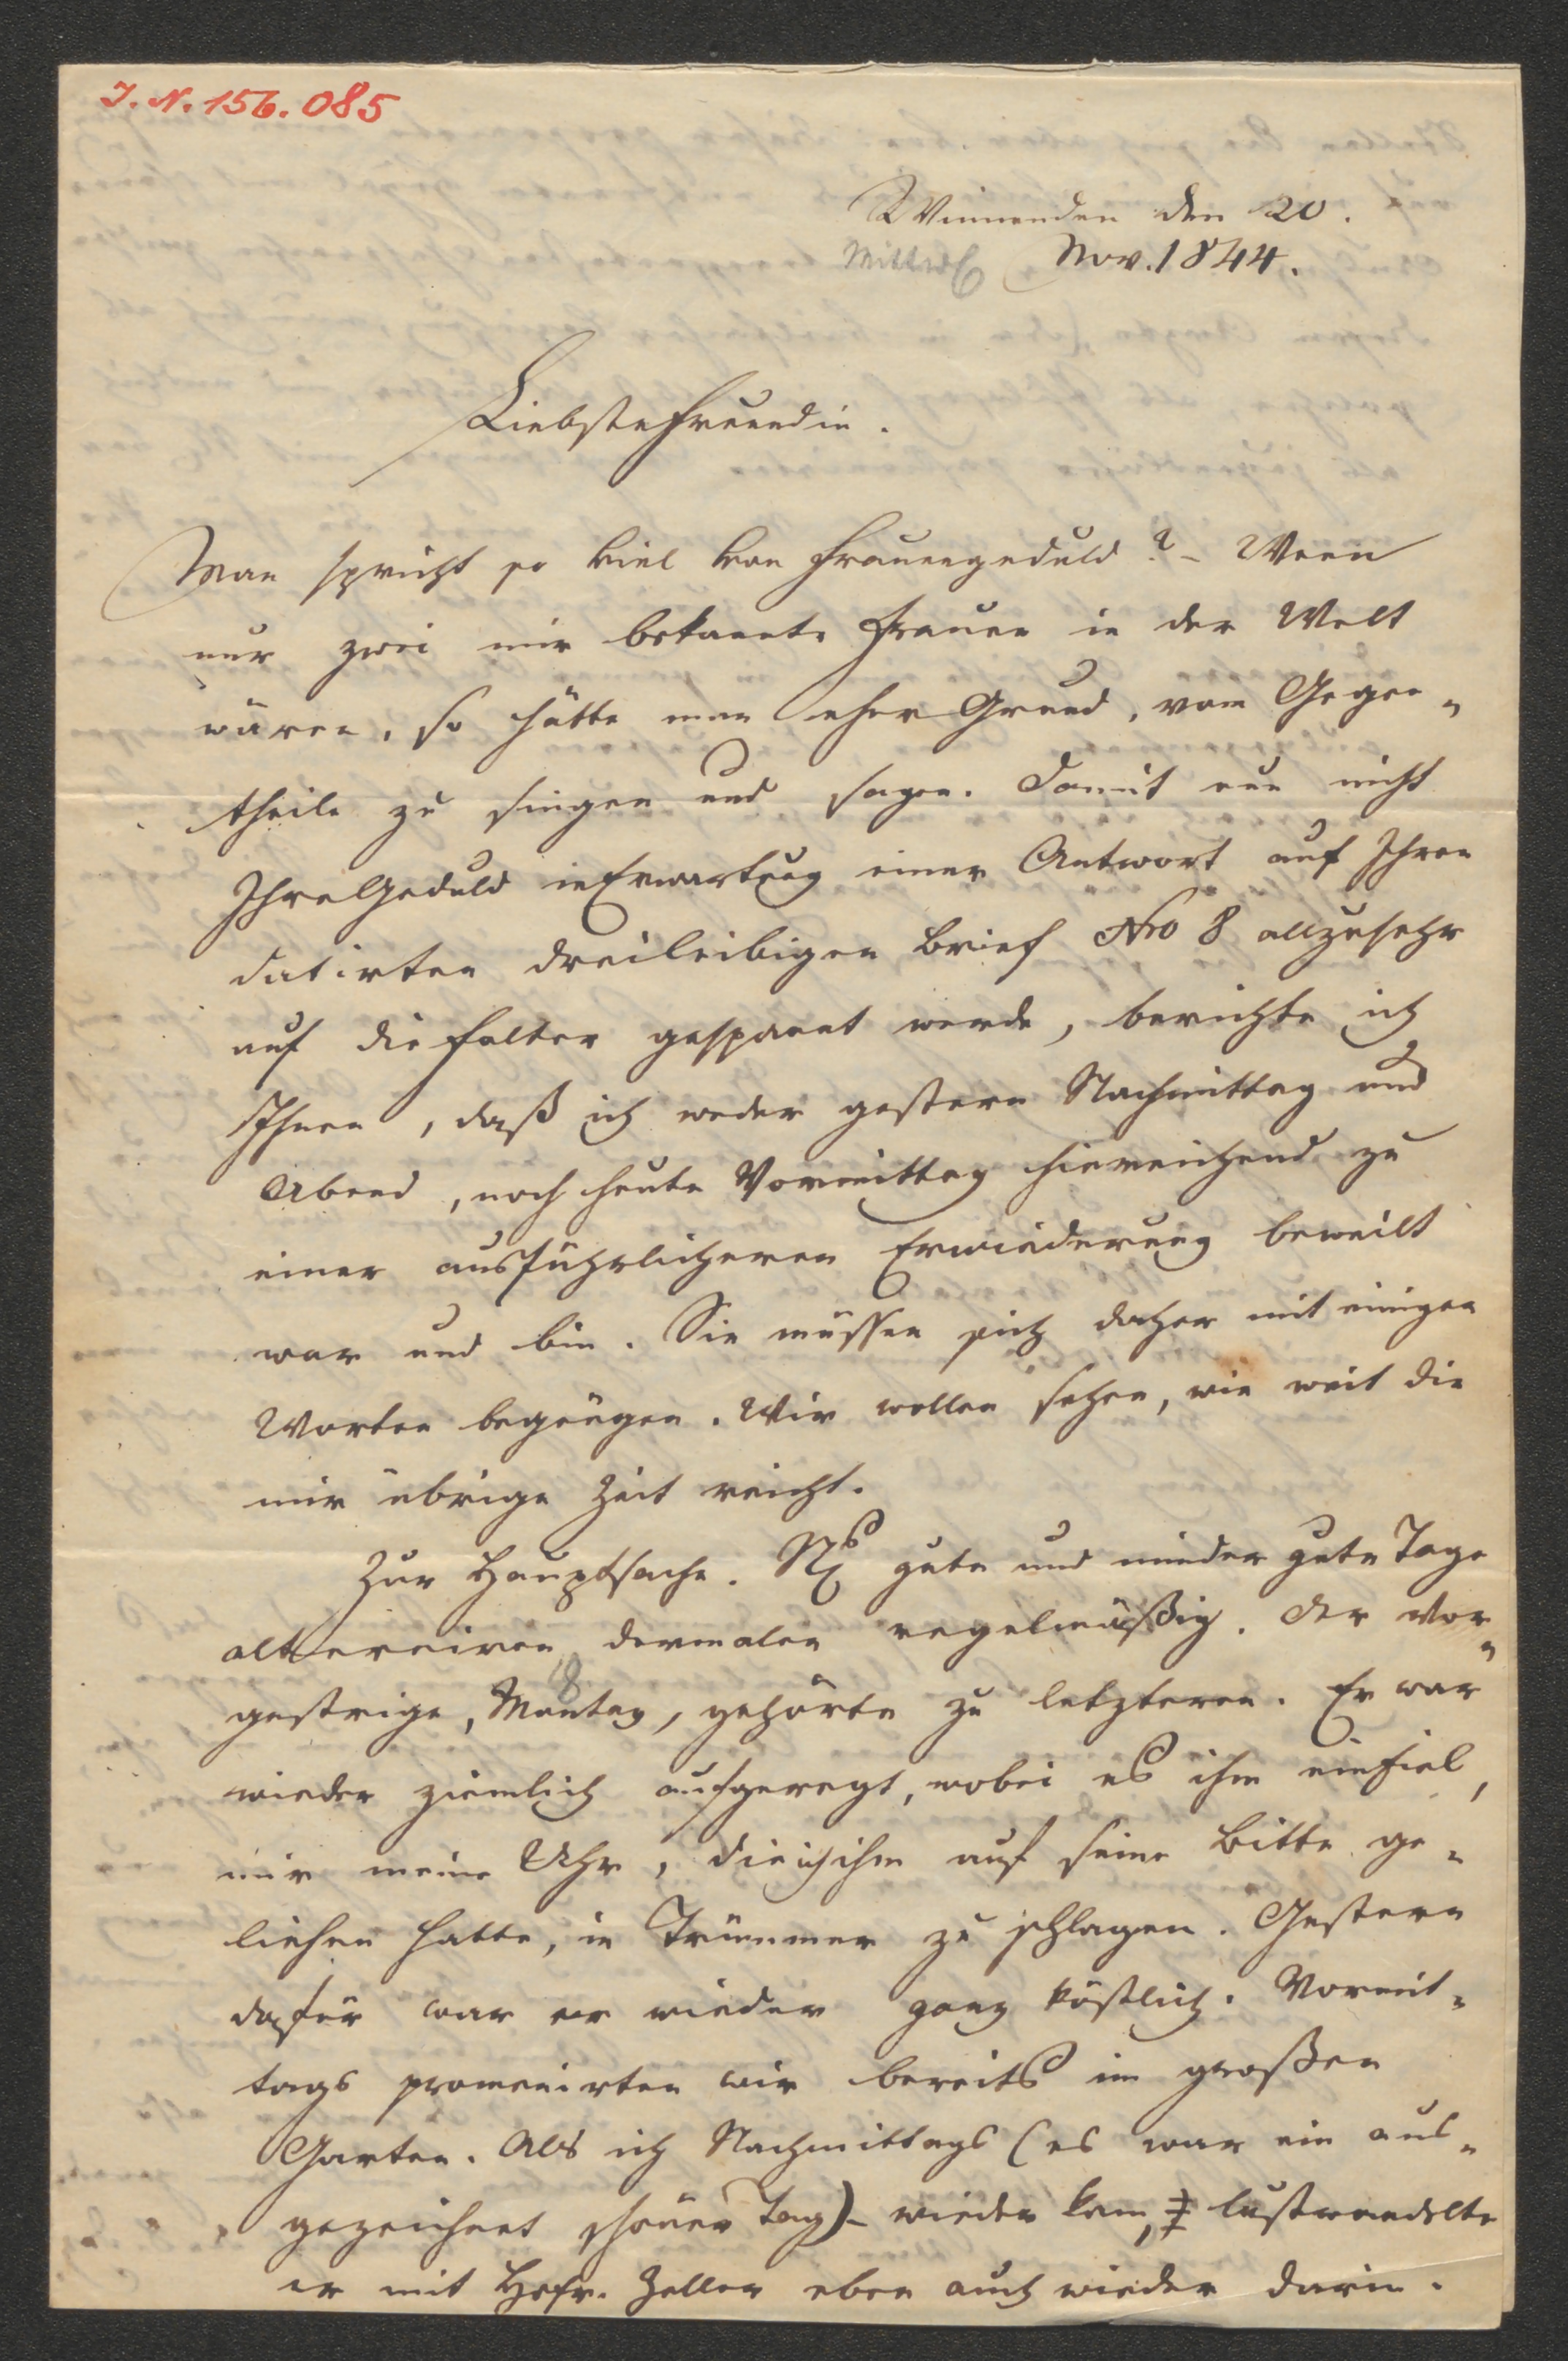 I. N. 156.085
Winnenden den 20.
Mittw Nov. 1844.
Liebste Freundin.
Man spricht so viel von Frauengeduld? – Wenn
nur zwei mir bekannte Frauen in der Welt
wären, so hätte man eher Grund, vom Gegen-
theile zu singen und sagen. Damit nun nicht
Ihre Geduld in Erwartung einer Antwort auf Ihren
datirten dreileibigen Brief Nro 8 allzusehr
auf die Folter gespannt werde, berichte ich
Ihnen, daß ich weder gestern Nachmittag und
Abend, noch heute Vormittag hinreichend zu
einer ausführlicheren Erwiederung beweilt
war und bin. Sie müssen sich daher mit einigen
Worten begnügen. Wir wollen sehen, wie weit die
mir übrige Zeit reicht.
Zur Hauptsache. Ns gute und minder gute Tage
alterniren dermalen regelmäßig. Der vor-
gestrige, Montag, gehörte zu letzteren. Er war
18
wieder ziemlich aufgeregt, wobei es ihm einfiel,
mir meine Uhr, die ich ihm auf seine Bitte ge-
liehen hatte, in Trümmer zu schlagen. Gestern
dafür war er wieder ganz köstlich. Vormit-
tags promenirten wir bereits im großen
Garten. Als ich Nachmittags (es war ein aus-
gezeichnet schöner Tag) – wieder kam, lustwandelte
er mit Hofr. Zeller eben auch wieder darin.